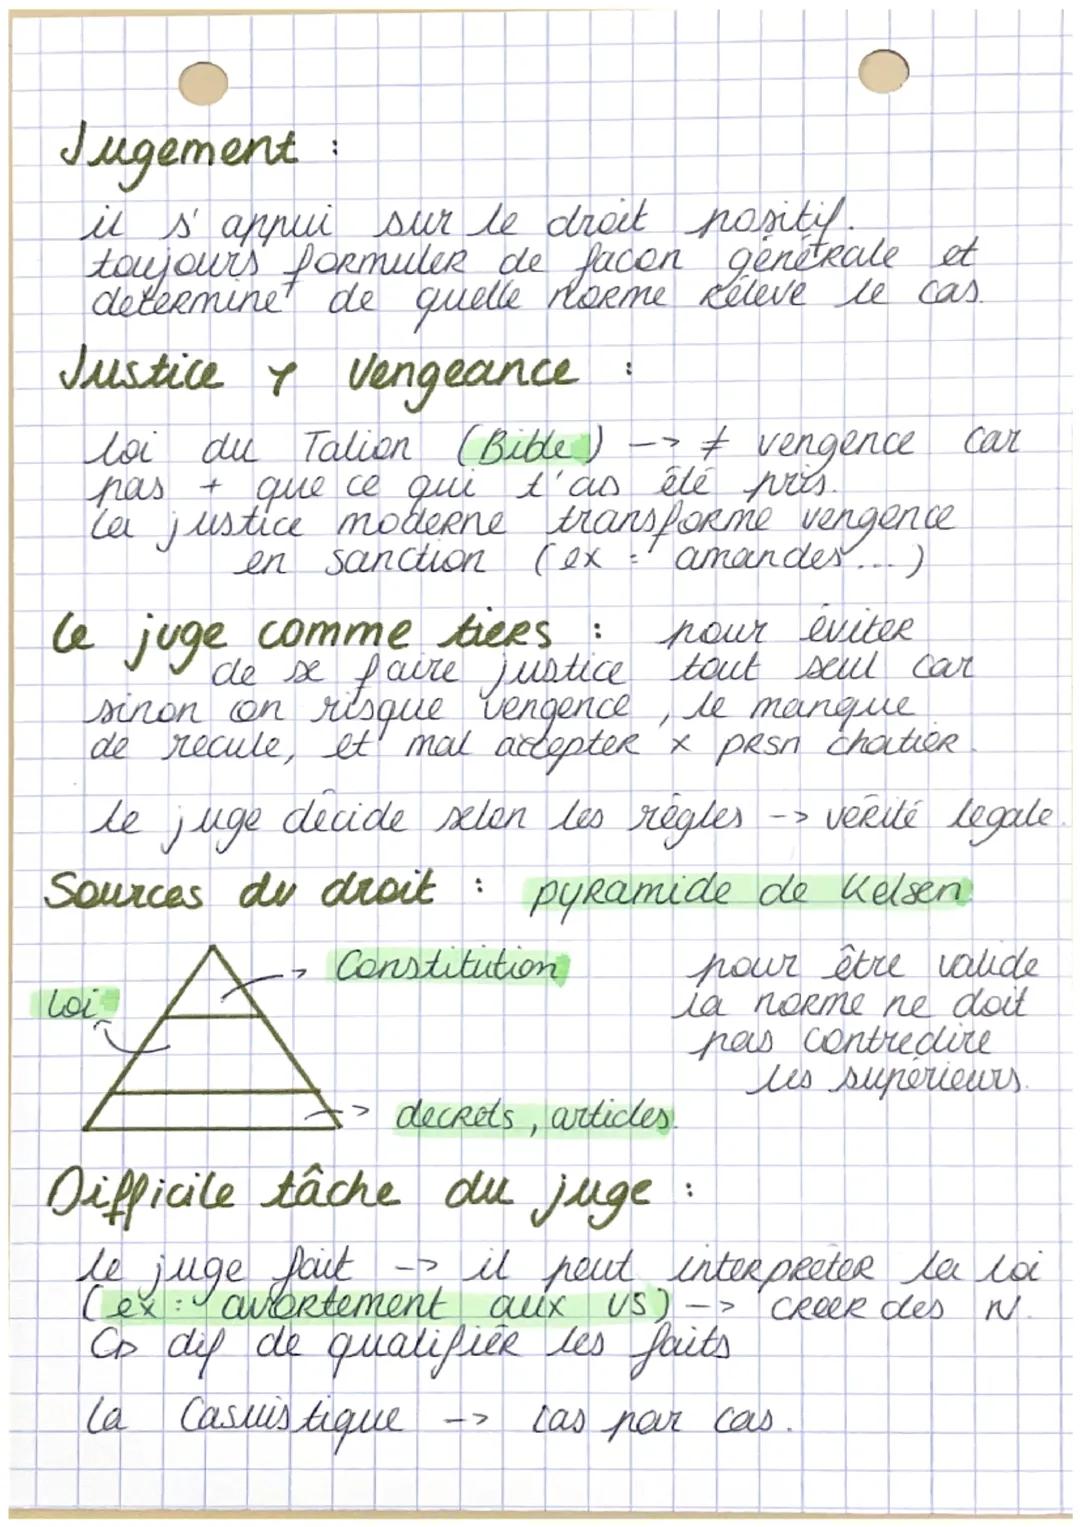 Jugement :
il s'appui sur le droit positif.
toujours formuler de facon générale et
determine de quelle norme réleve le cas.
Justice & Vengeance :
loi du Talion (Bible) --> ≠ vengence car
pas + que ce qui t'as été pris.
la justice moderne transforme vengence
en sanction (ex : amandes...)
le juge comme tiers : pour éviter
de se faire justice tout seul car
sinon on risque vengence, le manque
de recule, et mal accepter x prsn chatier.
le juge décide selon les règles --> vérité legale.
Sources du droit : pyramide de Kelsen
Constitution
loi
pour être valide
la norme ne doit
pas contredire
les supérieurs.
decrets, articles.
Difficile tâche du juge :
le juge fait --> il peut interpreter la loi
(ex : avortement aux US) --> creer des N.
↳ dif de qualifier les faits
la Casuistique --> cas par cas.